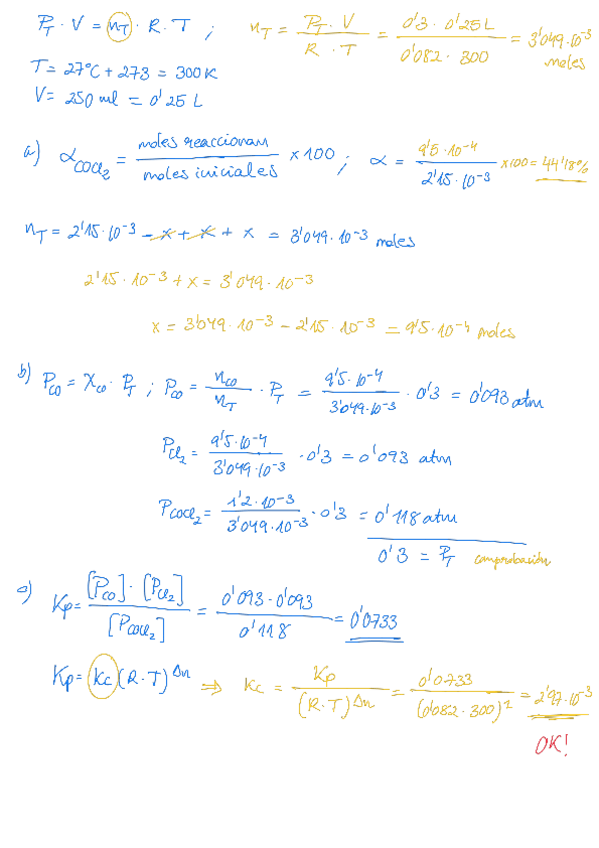 P_T · V = n_T · R · T ; n_T = P_T · V / R · T = 0'3 · 0'25 L / 0'082 · 300 = 3'049·10^-3 moles
T = 27ºC + 273 = 300 K
V = 250 ml = 0'25 L
a) α_COCl2 = moles reaccionan / moles iniciales x 100 ; α = 9'5·10^-4 / 2'15·10^-3 x100 = 44'18%
n_T = 2'15·10^-3 - x + x + x = 3'049·10^-3 moles
2'15·10^-3 + x = 3'049·10^-3
x = 3'049·10^-3 - 2'15·10^-3 = 9'5·10^-4 moles
b) P_CO = X_CO · P_T ; P_CO = n_CO / n_T · P_T = 9'5·10^-4 / 3'049·10^-3 · 0'3 = 0'093 atm
P_Cl2 = 9'5·10^-4 / 3'049·10^-3 · 0'3 = 0'093 atm
P_COCl2 = 1'2·10^-3 / 3'049·10^-3 · 0'3 = 0'118 atm
0'3 = P_T comprobación
Kp = [P_CO] · [P_Cl2] / [P_COCl2] = 0'093 · 0'093 / 0'118 = 0'0733
Kp = Kc (R·T)^Δn ⇒ Kc = Kp / (R·T)^Δn = 0'0733 / (0'082 · 300)^1 = 2'97·10^-3
OK!